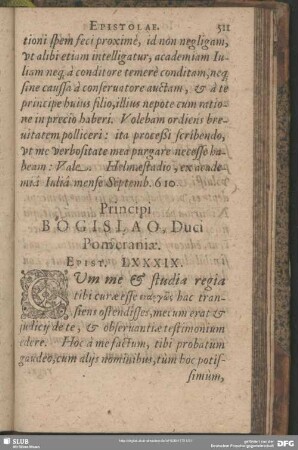 EPISTOLAE. 311
tioni spem feci proximè, id nòn negligam,
vt alibi etiam intelligatur, academiam Iu-
liam neq; à conditore temerè conditam, neq;
sine caussa à conservatore auctam, & à te
principe huius filio, illius nepote cum ratio-
ne in precio haberi. Volebam ordiens bre-
uitatem polliceri: ita processi scribendo,
vt me verbositate mea purgare necesse ha-
beam: Vale. Helmestadio, ex acade-
miâ Iuliâ mense Septemb. 610.
Principi
BOGISLAO, Duci
Pomeraniæ.
EPIST. LXXXIX.
CUm me & studia regia
tibi curæ esse hac tran-
siens ostendisses, mecum erat &
judicij de te, & observantiæ testimonium
edere. Hoc à me factum, tibi probatum
gaudeo, cum alijs nominibus, tùm hoc potis-
simùm,
SLUB
Wir führen Wissen.
gefördert von der
Deutschen Forschungsgemeinschaft